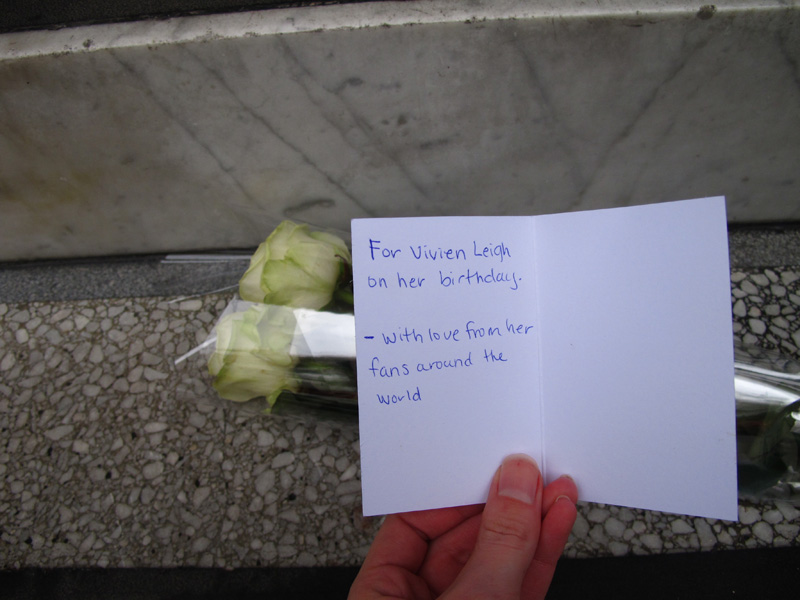 For Vivien Leigh
on her birthday.
- with love from her
fans around the
world